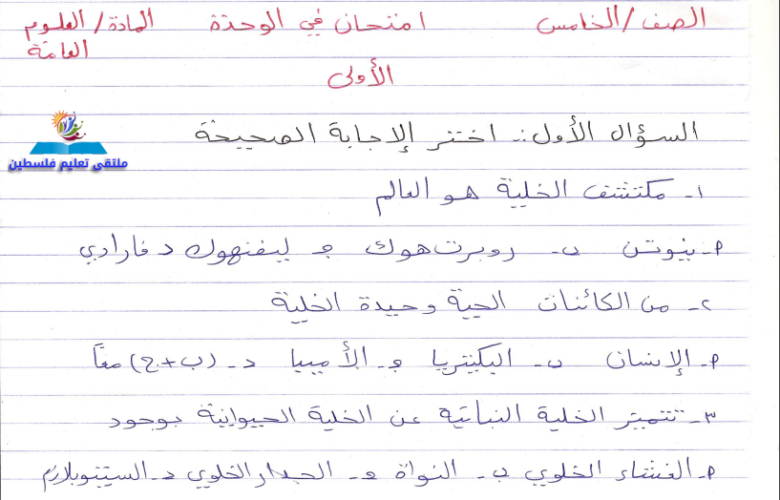 الصف/الخامس امتحان في الوحدة المادة/ العلوم العامة
الأولى
ملتقى تعليم فلسطين
السؤال الأول:. اختر الإجابة الصحيحة
١- مكتشف الخلية هو العالم
أ- نيوتن ب- روبرت هوك ج- ليفنهوك د- فارادي
٢- من الكائنات الحية وحيدة الخلية
أ- الإنسان ب- البكتيريا ج- الأميبا د- (ب+ج) معاً
٣- تتميز الخلية النباتية عن الخلية الحيوانية بوجود
أ- الغشاء الخلوي ب- النواة ج- الجدار الخلوي د- السيتوبلازم